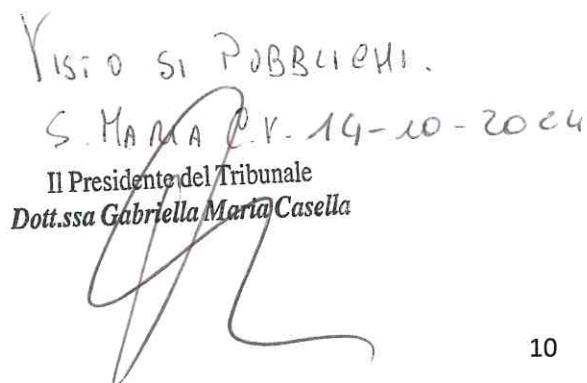 VISTO SI PUBBLICHI.
S. MARIA C.V. 14-10-2024
Il Presidente del Tribunale
Dott.ssa Gabriella Maria Casella
10